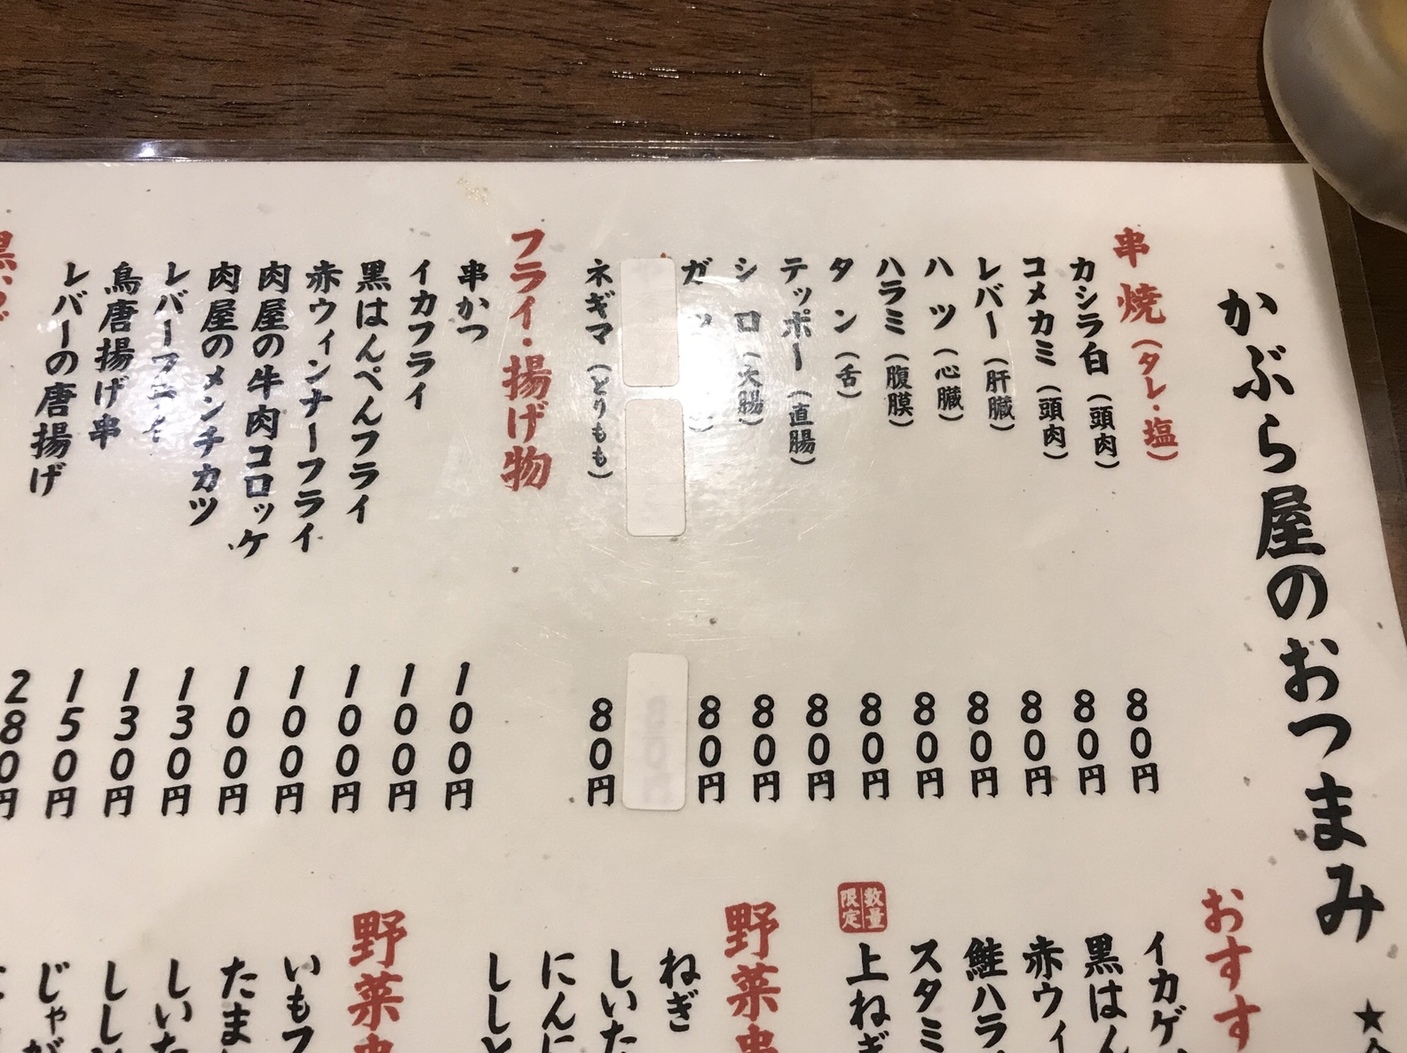 かぶら屋のおつまみ
串焼（タレ・塩）
カシラ白（頭肉） 80円
コメカミ（頭肉） 80円
レバー（肝臓） 80円
ハツ（心臓） 80円
ハラミ（腹膜） 80円
タン（舌） 80円
テッポー（直腸） 80円
シロ（大腸） 80円
ガツ 80円
ネギマ（とりもも） 80円
フライ・揚げ物
串かつ 100円
イカフライ 100円
黒はんぺんフライ 100円
赤ウィンナーフライ 100円
肉屋の牛肉コロッケ 100円
肉屋のメンチカツ 130円
レバーフライ 130円
鳥唐揚げ串 150円
レバーの唐揚げ 280円
おすす
イカゲ
黒はん
赤ウィ
鮭ハラ
スタミ
数量限定
上ねぎ
野菜串
ねぎ
しいた
にんに
ししと
野菜串
いもフ
たま
しいた
しし
じゃが